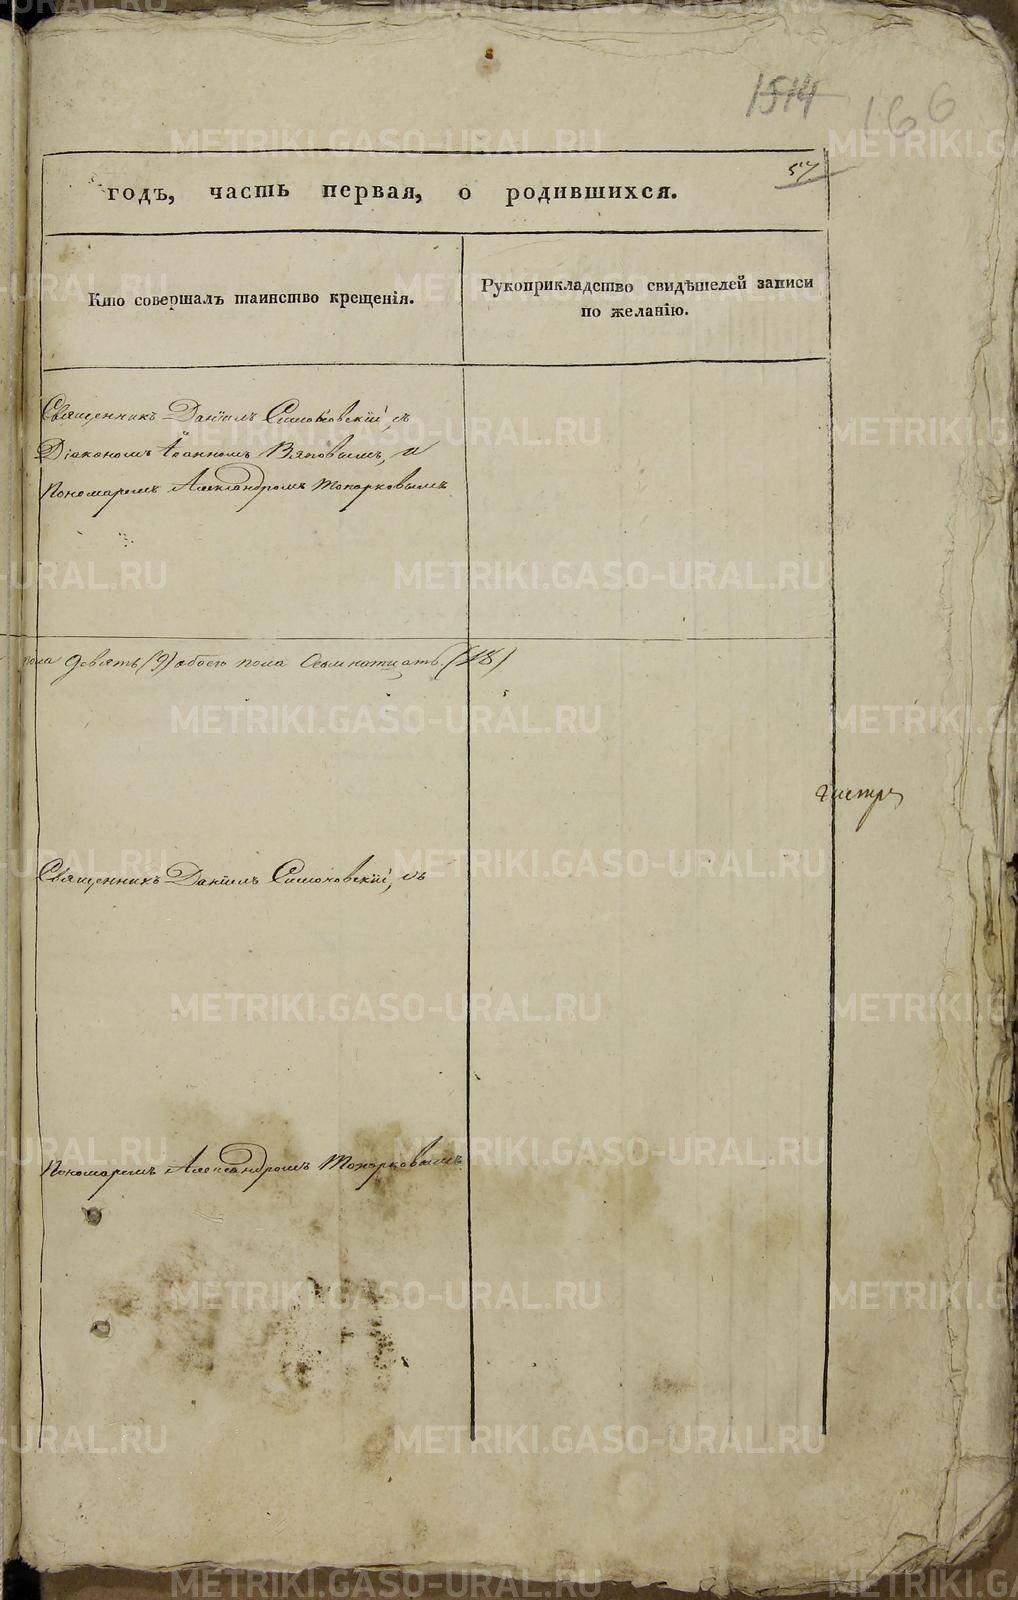 1514
166
57
годъ, часть первая, о родившихся.
Кто совершалъ таинство крещенія.
Рукоприкладство свидѣтелей записи
по желанію.
Священникъ Даніилъ Симоновскій, съ
Діакономъ Іоанномъ Вяповымъ, и
Пономаремъ Александромъ Топорковымъ
пола девять (9) обоего пола (18)
Священникъ Даніилъ Симоновскій, съ
Пономаремъ Александромъ Топорковымъ
METRIKI.GASO-URAL.RU